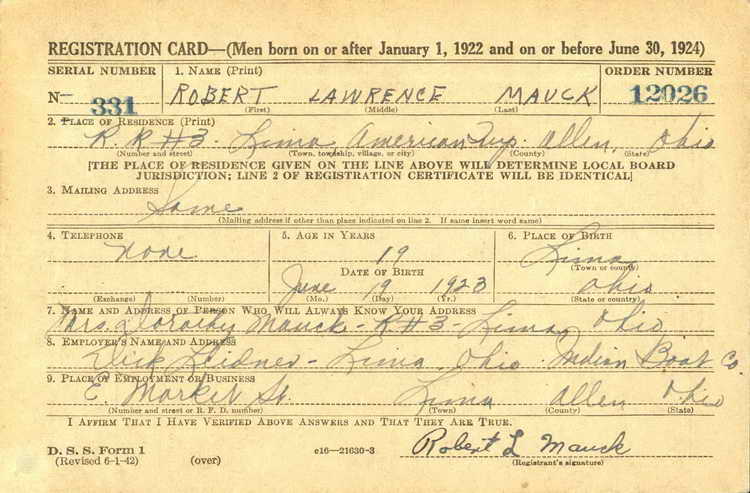 REGISTRATION CARD—(Men born on or after January 1, 1922 and on or before June 30, 1924)
SERIAL NUMBER 1. NAME (Print) ORDER NUMBER
N- 331 ROBERT LAWRENCE MAUCK 12026
(First) (Middle) (Last)
2. PLACE OF RESIDENCE (Print)
R.R #3. Lima American Twp. Allen, Ohio
(Number and street) (Town, township, village, or city) (County) (State)
[THE PLACE OF RESIDENCE GIVEN ON THE LINE ABOVE WILL DETERMINE LOCAL BOARD
JURISDICTION; LINE 2 OF REGISTRATION CERTIFICATE WILL BE IDENTICAL]
3. MAILING ADDRESS
Same
(Mailing address if other than place indicated on line 2. If same insert word same)
4. TELEPHONE 5. AGE IN YEARS 6. PLACE OF BIRTH
None 19 Lima
(Town or county)
DATE OF BIRTH
June 19 1923 Ohio
(Exchange) (Number) (Mo.) (Day) (Yr.) (State or country)
7. NAME AND ADDRESS OF PERSON WHO WILL ALWAYS KNOW YOUR ADDRESS
Mrs. Dorothy Mauck - R#3 - Lima, Ohio
8. EMPLOYER'S NAME AND ADDRESS
Dick Leidner - Lima, Ohio. Indian Boat Co.
9. PLACE OF EMPLOYMENT OR BUSINESS
E. Market St. Lima Allen Ohio
(Number and street or R. F. D. number) (Town) (County) (State)
I AFFIRM THAT I HAVE VERIFIED ABOVE ANSWERS AND THAT THEY ARE TRUE.
D. S. S. Form 1
(Revised 6-1-42) (over) c16—21630-3 Robert L Mauck
(Registrant's signature)